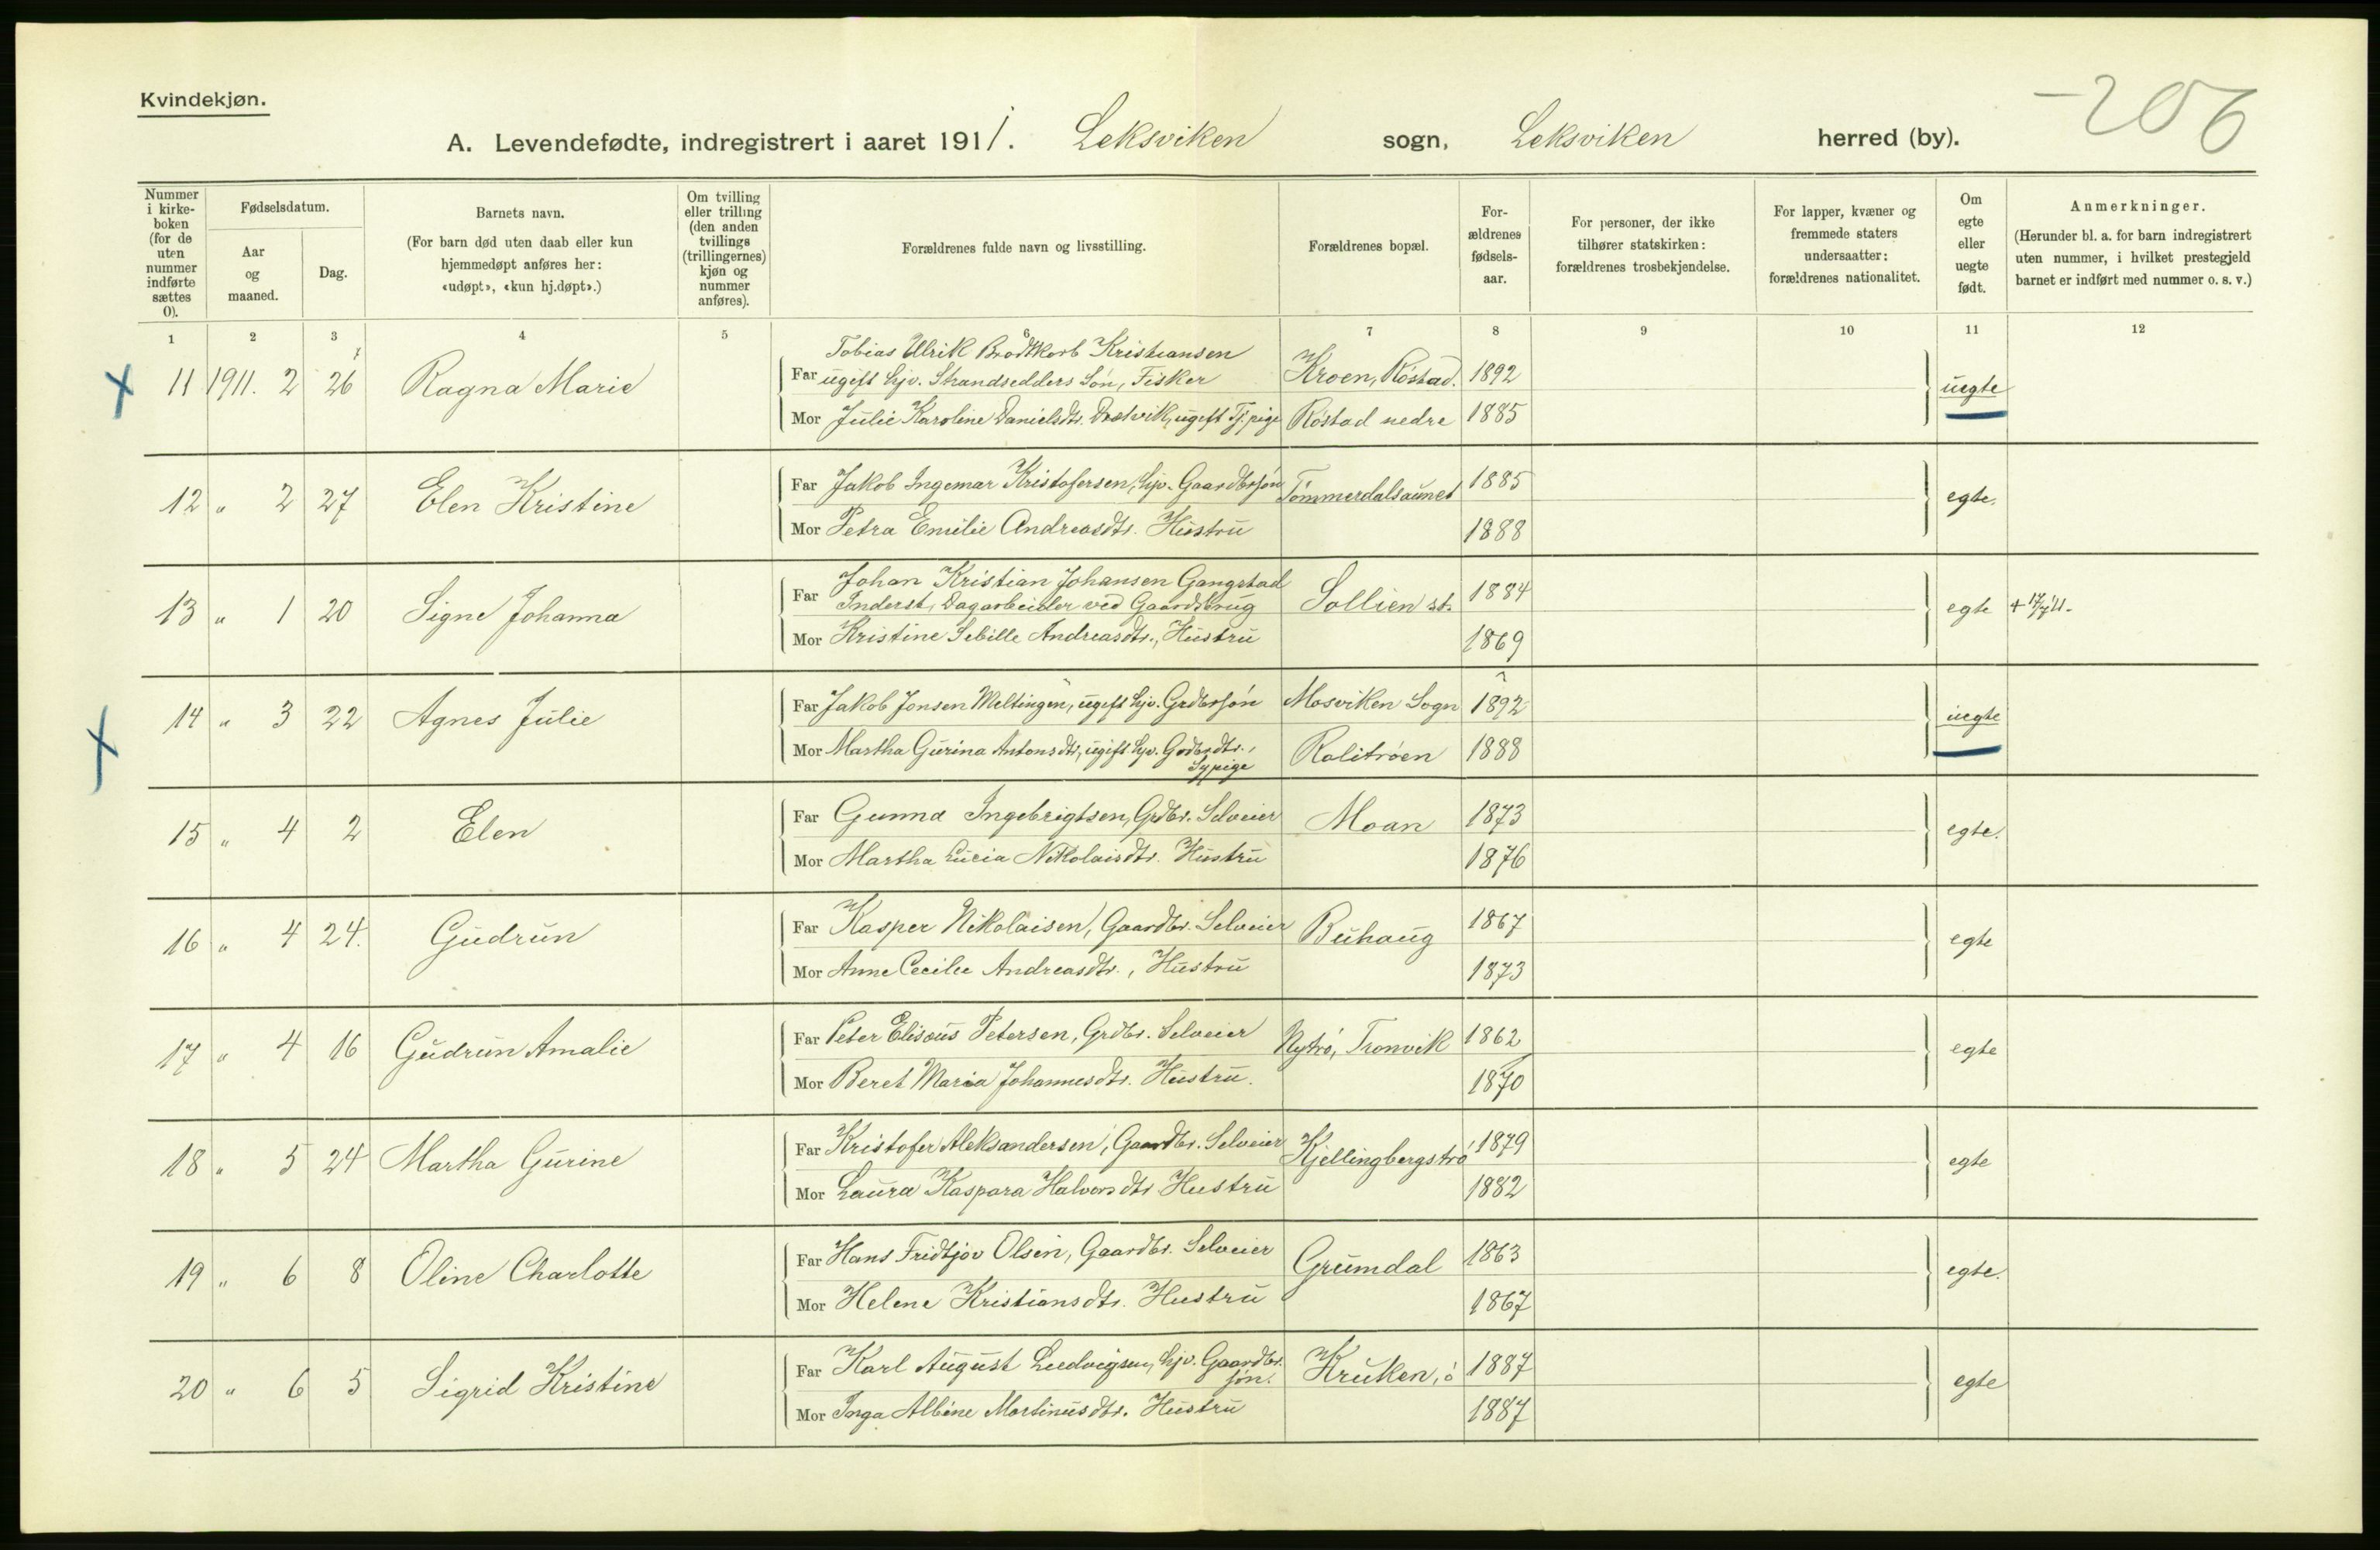 Kvindekjøn.
-206
A. Levendefødte, indregistrert i aaret 1911. Leksviken sogn, Leksviken herred (by).
Nummer i kirkeboken (for de uten nummer indførte sættes 0).
Fødselsdatum.
Aar og maaned.
Dag.
Barnets navn.
(For barn død uten daab eller kun hjemmedøpt anføres her: «udøpt», «kun hj.døpt».)
Om tvilling eller trilling (den anden tvillings (trillingernes) kjøn og nummer anføres).
Forældrenes fulde navn og livsstilling.
Forældrenes bopæl.
Forældrenes fødselsaar.
For personer, der ikke tilhører statskirken: forældrenes trosbekjendelse.
For lapper, kvæner og fremmede staters undersaatter: forældrenes nationalitet.
Om egte eller uegte født.
Anmerkninger.
(Herunder bl. a. for barn indregistrert uten nummer, i hvilket prestegjeld barnet er indført med nummer o. s. v.)
1 2 3 4 5 6 7 8 9 10 11 12
Tobias Ulrik Brodtkorb Kristiansen
11 1911. 2 26 Ragna Marie Far ugift hjv. Strandsedders Søn, Fisker Kroen, Röstad. 1892 uegte
Mor Julie Karoline Danielsdtr. ugift Tj.pige Röstad nedre 1885
12 " 2 27 Elen Kristine Far Jakob Ingemar Kristofersen, hjv. Gaardbrsjön Tömmerdalsaunet 1885 egte.
Mor Petra Emilie Andreasdtr. Hustru 1888
13 " 1 20 Signe Johanna Far Johan Kristian Johansen Gangstad
Inderst, Dagarbeider ved Gaardsbrug Sollien st. 1884 egte + 17/7 11.
Mor Kristine Sebille Andreasdtr., Hustru 1869
14 " 3 22 Agnes Julie Far Jakob Jonsen Meltingen, ugift hjv. Grdbrsjön Mosviken Sogn 1892 uegte
Mor Martha Gurina Antonsdtr, ugift hjv. Grdbrdtr., Sypige Ralitröen 1888
15 " 4 2 Elen Far Gunna Ingebrigtsen, Grdbr. Selveier Moan 1873 egte.
Mor Martha Lucia Nikolaisdtr. Hustru 1876
16 " 4 24. Gudrun Far Kasper Nikolaisen, Gaardbr. Selveier Buhaug 1867 egte
Mor Anne Cecilie Andreasdtr., Hustru 1873
17 " 4 16 Gudrun Amalie Far Peter Elisæus Petersen, Grdbr. Selveier Nytrö, Tronvik 1862 egte
Mor Beret Maria Johannesdtr. Hustru. 1870
18 " 5 24 Martha Gurine Far Kristofer Aleksandersen, Gaardbr. Selveier Kjellingbergströ 1879 egte
Mor Laura Kaspara Halvorsdtr Hustru 1882
19 " 6 8 Oline Charlotte Far Hans Fridtjov Olsen, Gaardbr. Selveier Grumdal 1863 egte.
Mor Helene Kristiansdtr. Hustru 1867
20 " 6 5 Sigrid Kristine Far Karl August Ludvigsen, hjv. Gaardbr. jön. Kruken, ö 1887 egte
Mor Inga Albine Martinusdtr. Hustru 1887